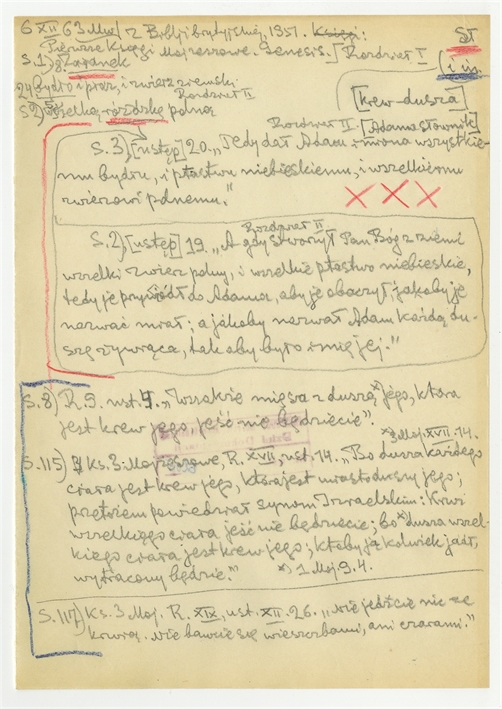 6 XII 63. z Biblji brytyjskiej, 1951. Księgi:
Pierwsze Księgi Mojżeszowe. Genesis.] Rozdział I
ST
S. 1) gZarodek
[i in.
24 bydło i płaz, i zwierz ziemski
Rozdział II
[krew-dusza]
S 2) 5. wszelką różdżkę polną
Rozdział II - [Adama słownik]
S. 3), [ustęp] 20. „Tedy dał Adam imiona wszystkie-
mu bydłu, i ptastwu niebieskiemu, i wszelkiemu
zwierzowi polnemu."
XXX
Rozdział II
S. 2), [ustęp] 19. „A gdy stworzył Pan Bóg z ziemi
wszelki zwierz polny, i wszelkie ptastwo niebieskie,
tedy je przywiódł do Adama, aby je obaczył, jakoby je
nazwać miał; a jakoby nazwał Adam każdą du-
szę żywiącą, tak aby było imię jej."
S. 8) R. 9. ust. 4. „Wszakże mięsa z duszą* jego, która
jest krew jego, jeść nie będziecie".
*3 Moj. XVII. 14.
S. 115) Ks. 3. Mojżeszowe, R. XVII, ust. 14. „Bo dusza każdego
ciała jest krew jego, która jest miasto duszy jego;
przetoż powiedział synom Izraelskim: Krwi
wszelkiego ciała jeść nie będziecie; bo* dusza wszel-
kiego ciała jest krew jego; ktobykolwiek ją jadł,
wytracony będzie."
*) 1 Moj. 9. 4.
S. 117) Ks. 3 Moj. R. XIX, ust. XII. 26. „Nie jedźcie nic ze
krwią. Nie bawcie się wieszczbami, ani czarami."